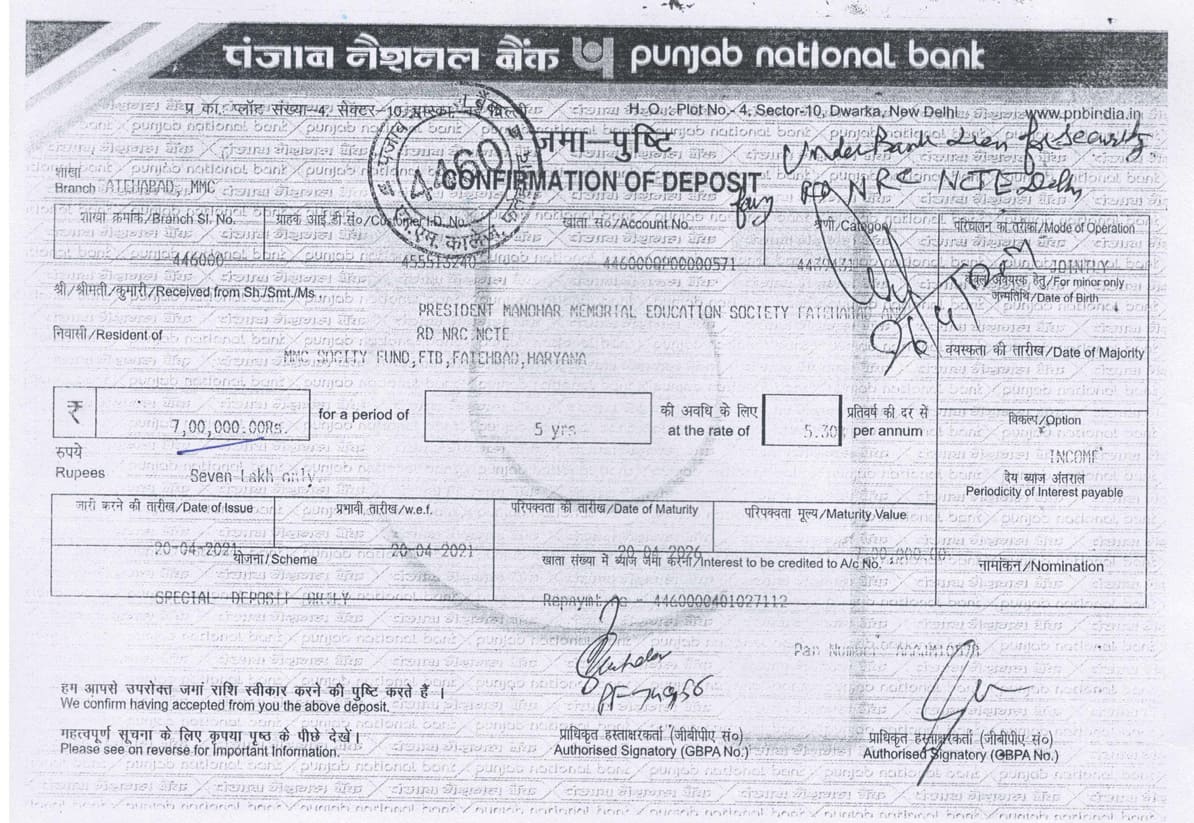 पंजाब नैशनल बैंक punjab national bank
प्र का. प्लॉट संख्या-4, सेक्टर-10, H. O.: Plot No.- 4, Sector-10, Dwarka, New Delhi www.pnbindia.in
जमा-पुष्टि
Under Bank Lien for Security
CONFIRMATION OF DEPOSIT
NRC NCTE Delhi
4460
शाखा
Branch ATEHABAD, MMC
शाखा क्रमांक/Branch Sl. No. ग्राहक आई.डी.सं०/Customer I.D. No. खाता सं०/Account No. श्रेणी/Category परिचालन का तरीका/Mode of Operation
446000 455515240 JOINTLY
केवल अवयस्क हेतु/For minor only
जन्मतिथि/Date of Birth
श्री/श्रीमती/कुमारी/Received from Sh./Smt./Ms.
PRESIDENT MANOHAR MEMORIAL EDUCATION SOCIETY FATEHABAD AND
निवासी/Resident of RD NRC NCTE
MMC SOCITY FUND,FTB,FATEHBAD,HARYANA
वयस्कता की तारीख/Date of Majority
₹ 7,00,000.00Rs. for a period of 5 yrs की अवधि के लिए at the rate of 5.30 प्रतिवर्ष की दर से per annum
विकल्प/Option
INCOME
रुपये
Rupees Seven Lakh only.
देय ब्याज अंतराल
Periodicity of Interest payable
जारी करने की तारीख/Date of Issue प्रभावी तारीख/w.e.f. परिपक्वता की तारीख/Date of Maturity परिपक्वता मूल्य/Maturity Value
20-04-2021 20-04-2021 20-04-2026 7,00,000.00
योजना/Scheme खाता संख्या में ब्याज जमा करना/Interest to be credited to A/c No. नामांकन/Nomination
SPECIAL DEPOSIT 4460000401027112
Pan Number
PF-74956
हम आपसे उपरोक्त जमा राशि स्वीकार करने की पुष्टि करते हैं ।
We confirm having accepted from you the above deposit.
महत्वपूर्ण सूचना के लिए कृपया पृष्ठ के पीछे देखें।
Please see on reverse for Important Information.
प्राधिकृत हस्ताक्षरकर्ता (जीबीपीए सं०) प्राधिकृत हस्ताक्षरकर्ता (जीबीपीए सं०)
Authorised Signatory (GBPA No.) Authorised Signatory (GBPA No.)